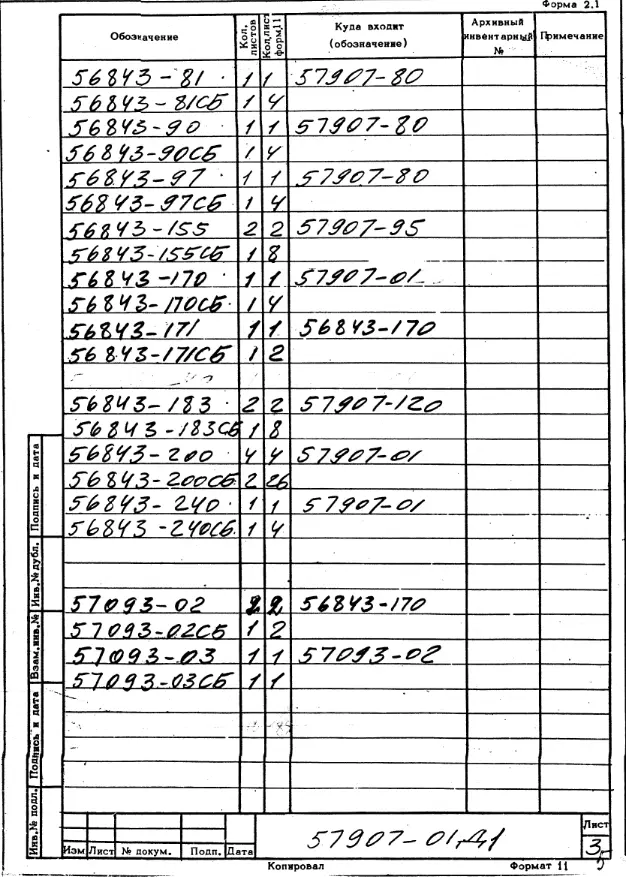 Форма 2.1
Обозначение Кол. листов Кол. лист форм.11 Куда входит (обозначение) Архивный инвентарный № Примечание
56843-81 1 1 57907-80
56843-81СБ 1 4
56843-90 1 1 57907-80
56843-90СБ 1 4
56843-97 1 1 57907-80
56843-97СБ 1 4
56843-155 2 2 57907-95
56843-155СБ 1 8
56843-170 1 1 57907-01
56843-170СБ 1 4
56843-171 1 1 56843-170
56843-171СБ 1 2
56843-183 2 2 57907-120
56843-183СБ 1 8
56843-200 4 4 57907-01
56843-200СБ 2 26
56843-240 1 1 57907-01
56843-240СБ. 1 4
57093-02 2 2 56843-170
57093-02СБ 1 2
57093-03 1 1 57093-02
57093-03СБ 1 1
Подпись и дата
Инв.№ дубл.
Взам.инв.№
Подпись и дата
Инв.№ подл.
Изм Лист № докум. Подп. Дата
57907-01Д1
Лист
3
Копировал Формат 11